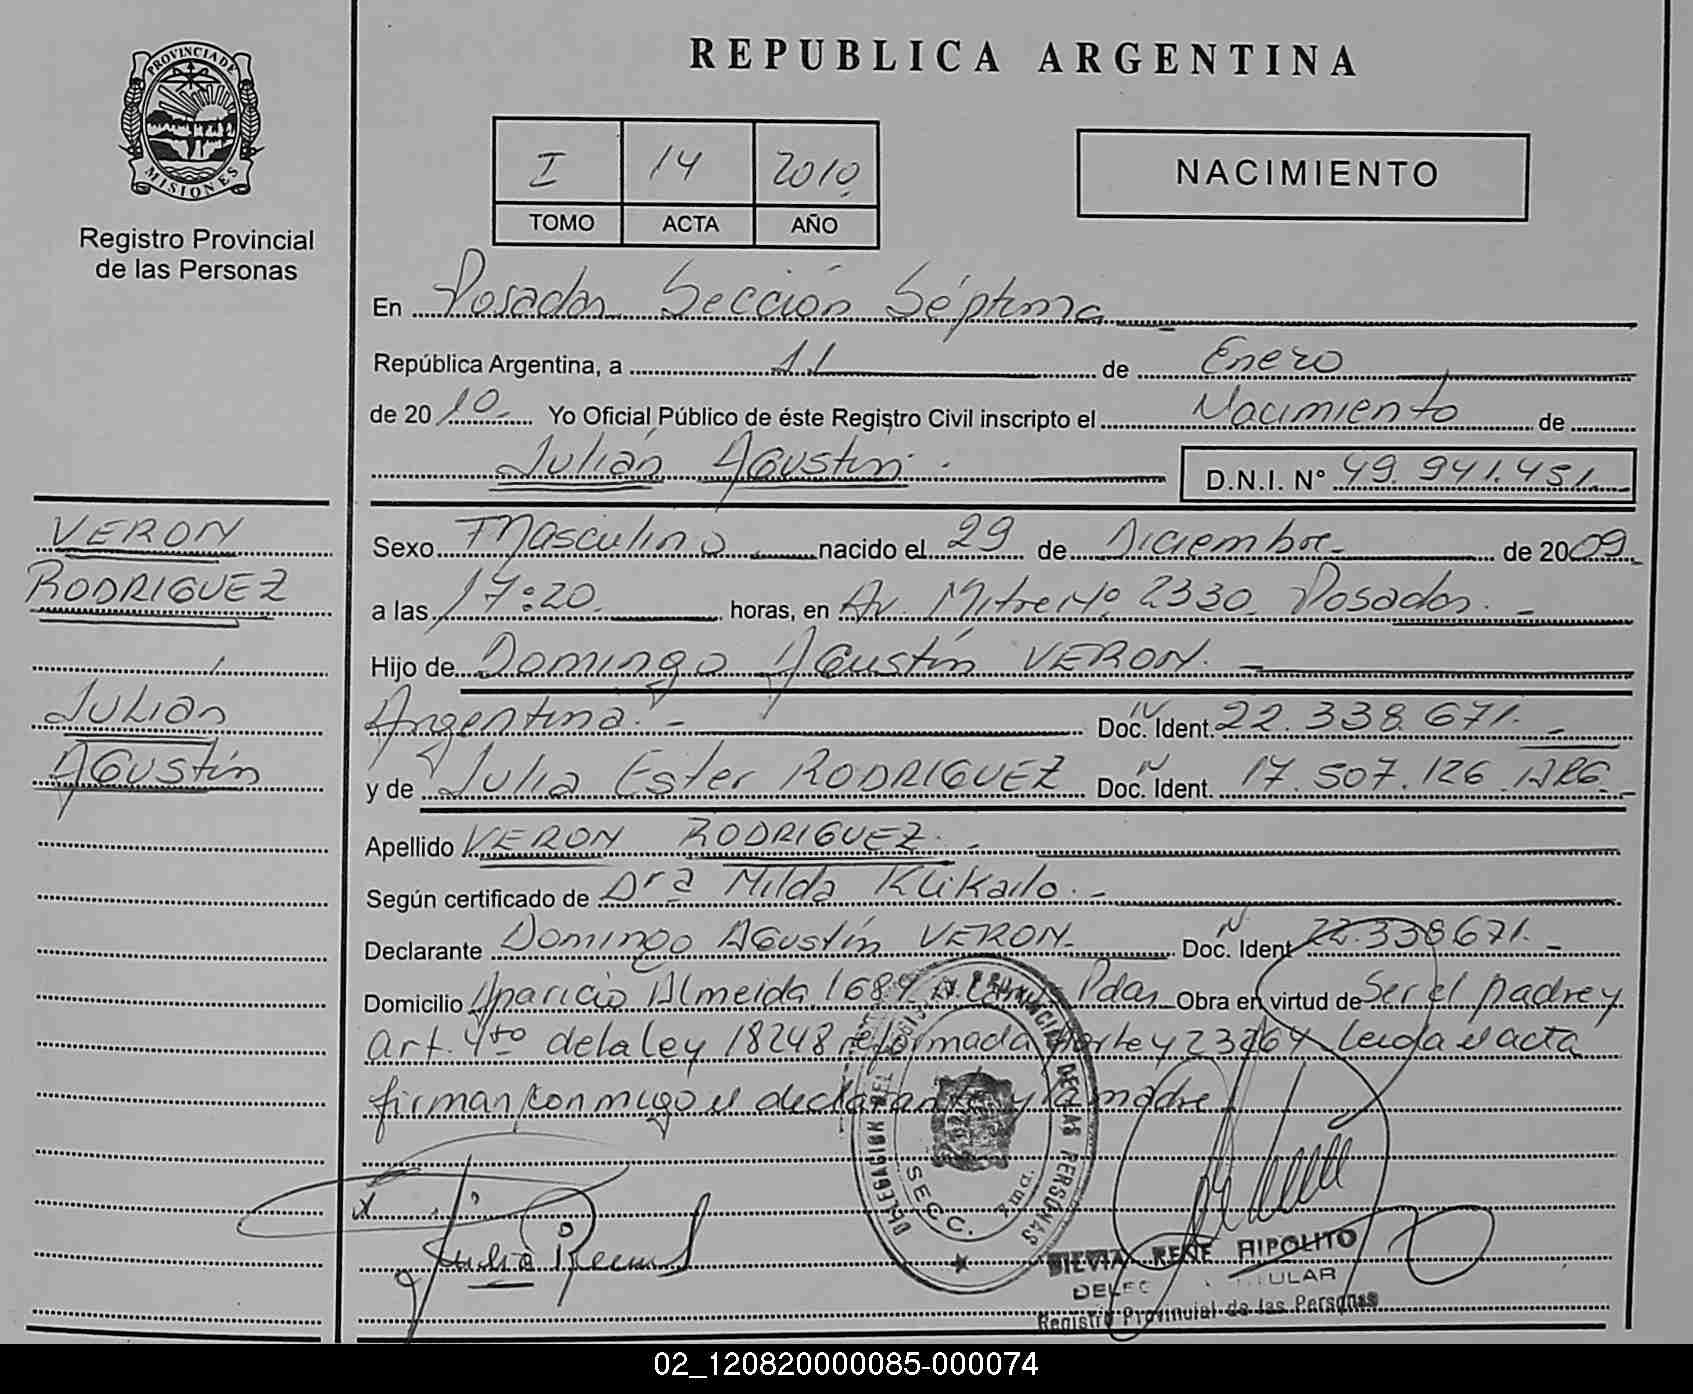 PROVINCIA DE
MISIONES
Registro Provincial
de las Personas
REPUBLICA ARGENTINA
I 14 2010
TOMO ACTA AÑO
NACIMIENTO
En Posadas Sección Séptima
República Argentina, a 11 de Enero
de 2010 Yo Oficial Público de éste Registro Civil inscripto el Nacimiento de
Julián Agustín D.N.I. N° 49.941.451
VERON
RODRIGUEZ
Julián
Agustín
Sexo Masculino nacido el 29 de Diciembre de 2009
a las 17:20 horas, en Av. Mitre Nº 2330 Posadas
Hijo de Domingo Agustín VERON
Argentina Doc. Ident. 22.338.671
y de Julia Ester RODRIGUEZ Doc. Ident. 17.507.126 ARG
Apellido VERON RODRIGUEZ
Según certificado de Dra Milda
Declarante Domingo Agustín VERON Doc. Ident 22.338.671
Domicilio Aparicio Almeida 1689 Pdas Obra en virtud de Ser el padre y
art. 4to de la ley 18248 reformada por ley 23264 leída el acta
firman conmigo el declarante y la madre
DELEGACION DEL REGISTRO PROVINCIAL DE LAS PERSONAS
SECC. 7ma.
RENE HIPOLITO
TITULAR
Registro Provincial de las Personas
02_120820000085-000074